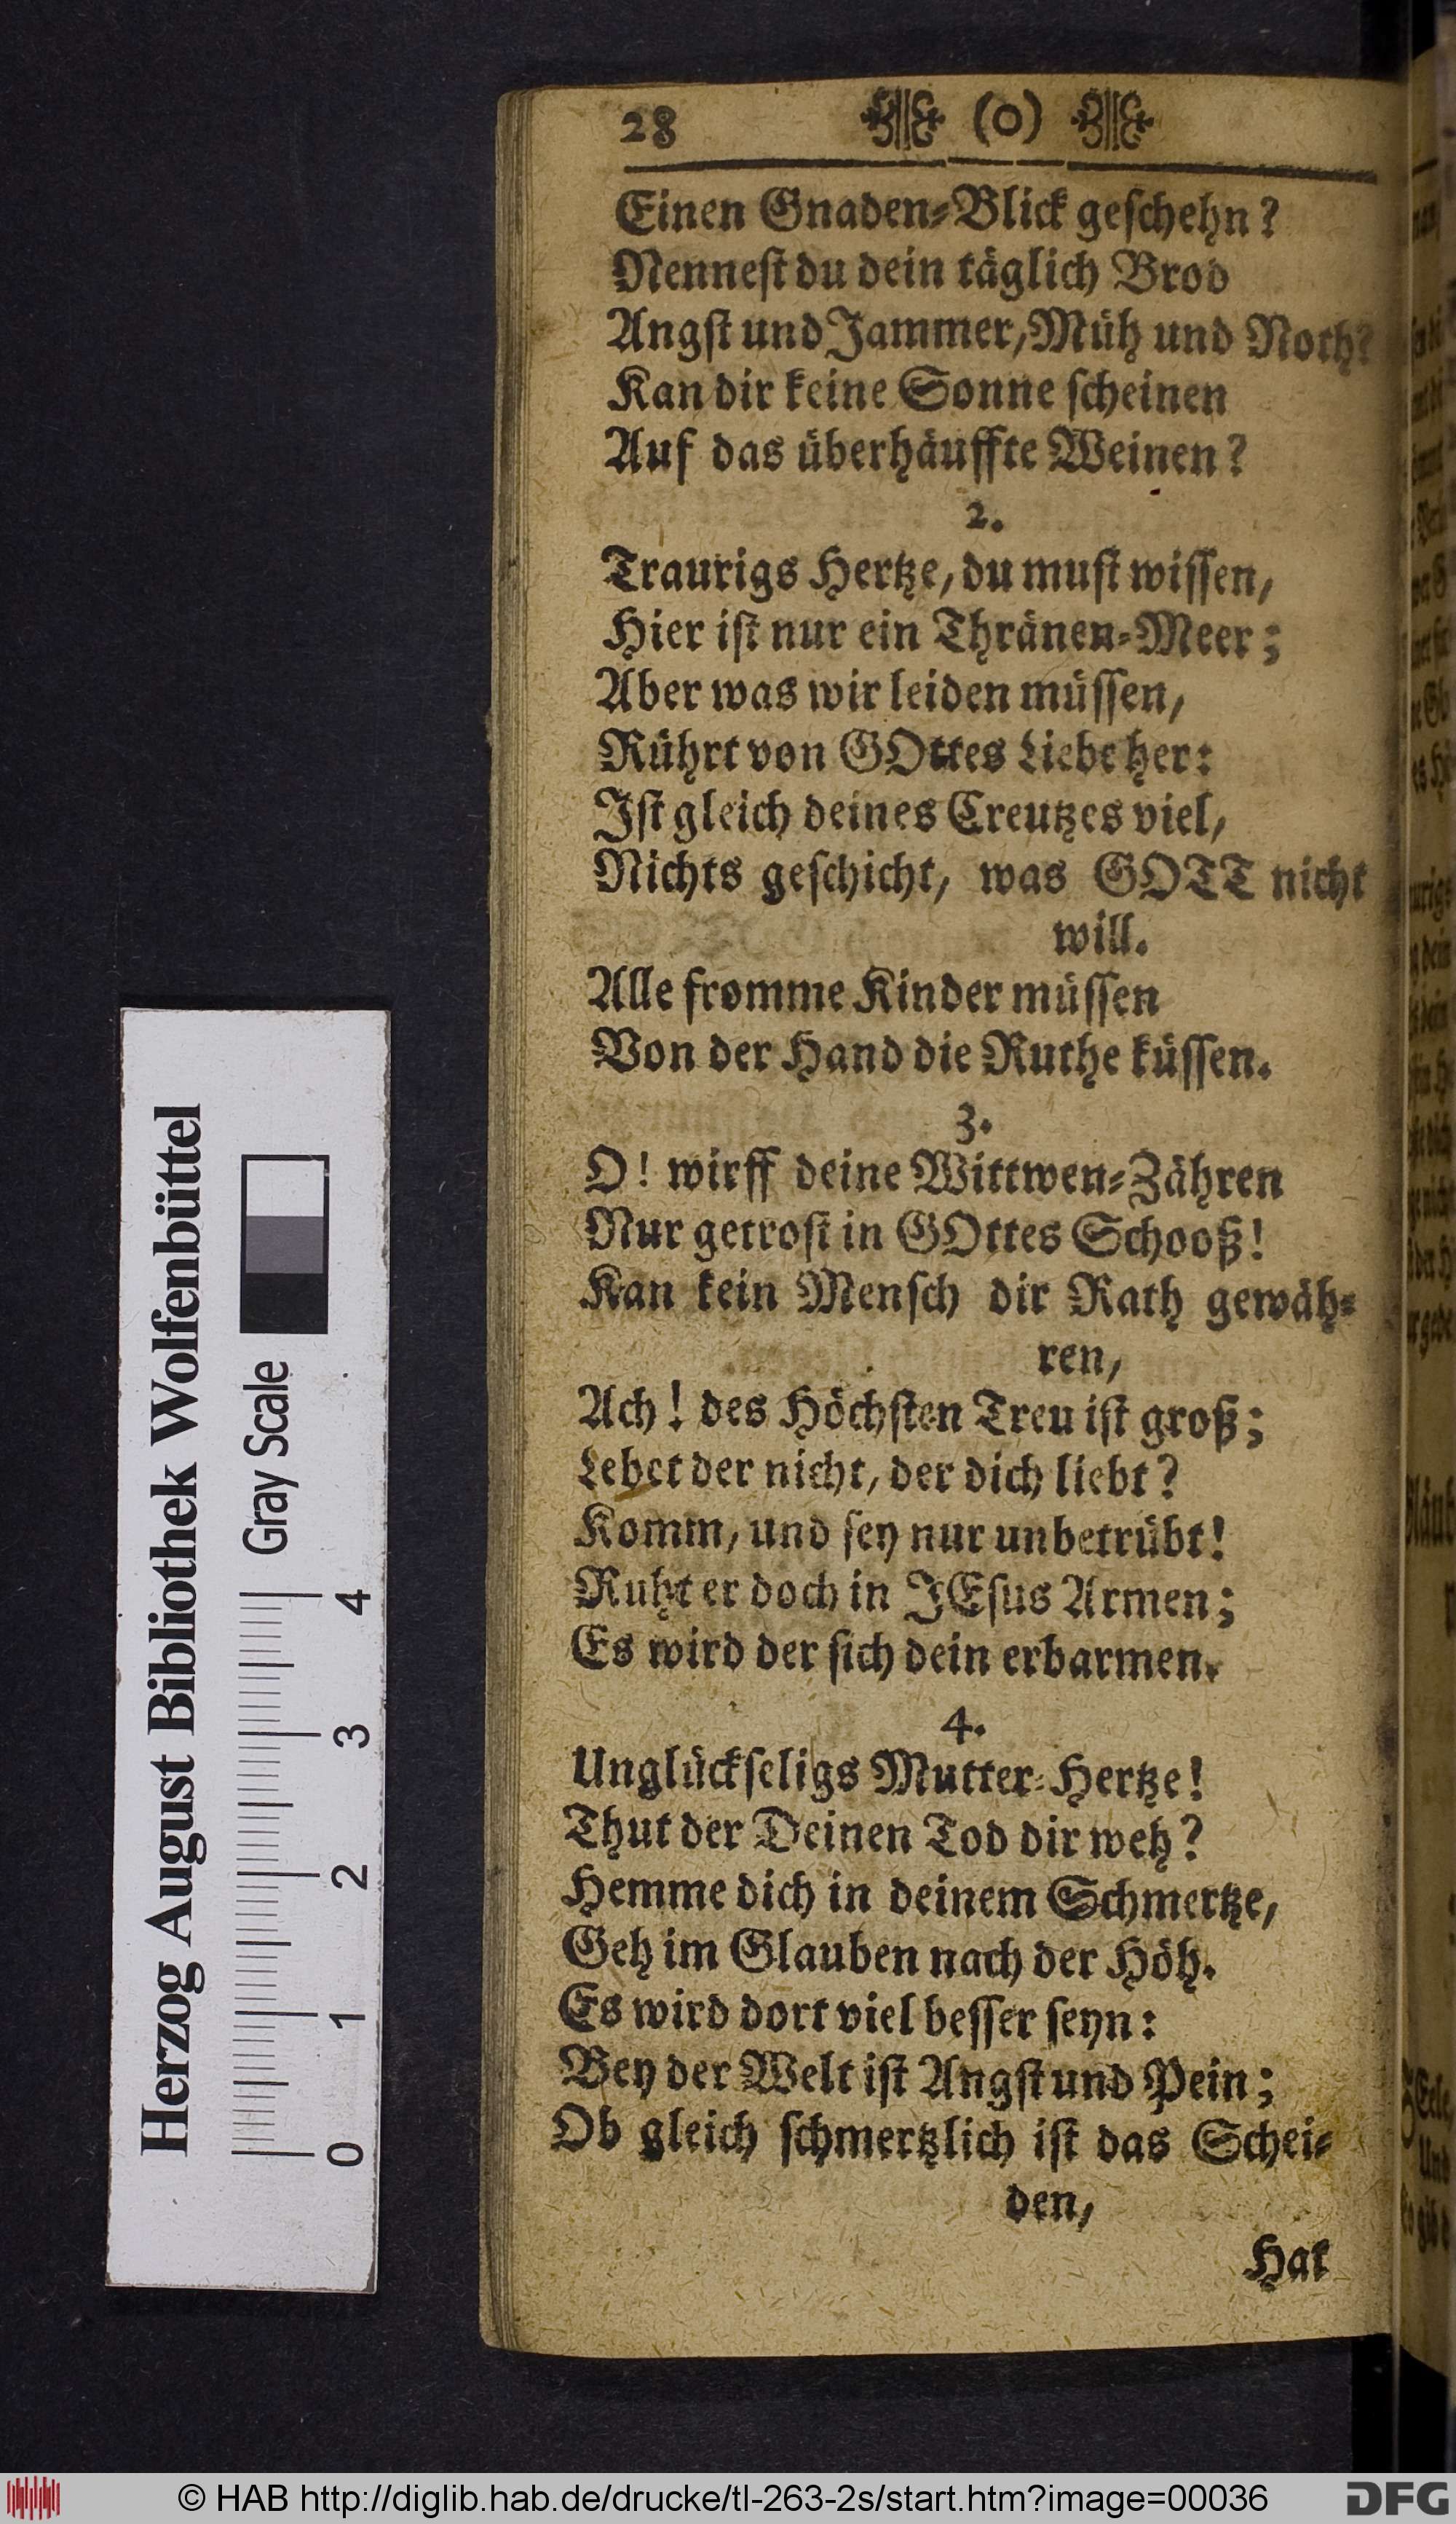 28 (o)
Einen Gnaden-Blick geschehn?
Nennest du dein täglich Brod
Angst und Jammer, Müh und Noth?
Kan dir keine Sonne scheinen
Auf das überhäuffte Weinen?
2.
Traurigs Hertze, du must wissen,
Hier ist nur ein Thränen-Meer;
Aber was wir leiden müssen,
Rührt von GOttes Liebe her:
Ist gleich deines Creutzes viel,
Nichts geschicht, was GOTT nicht
will.
Alle fromme Kinder müssen
Von der Hand die Ruthe küssen.
3.
O! wirff deine Wittwen-Zähren
Nur getrost in GOttes Schooß!
Kan kein Mensch dir Rath gewäh-
ren,
Ach! des Höchsten Treu ist groß;
Lebet der nicht, der dich liebt?
Komm, und sey nur unbetrübt!
Ruht er doch in JEsus Armen;
Es wird der sich dein erbarmen.
4.
Unglückseligs Mutter-Hertze!
Thut der Deinen Tod dir weh?
Hemme dich in deinem Schmertze,
Geh im Glauben nach der Höh.
Es wird dort viel besser seyn:
Bey der Welt ist Angst und Pein;
Ob gleich schmertzlich ist das Schei-
den,
Hat
Herzog August Bibliothek Wolfenbüttel
Gray Scale
0 1 2 3 4
© HAB http://diglib.hab.de/drucke/tl-263-2s/start.htm?image=00036
DFG